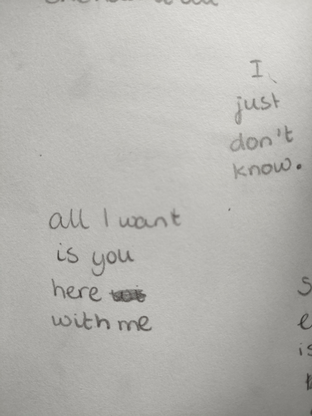 I
just
don't
know.
all I want
is you
here
with me